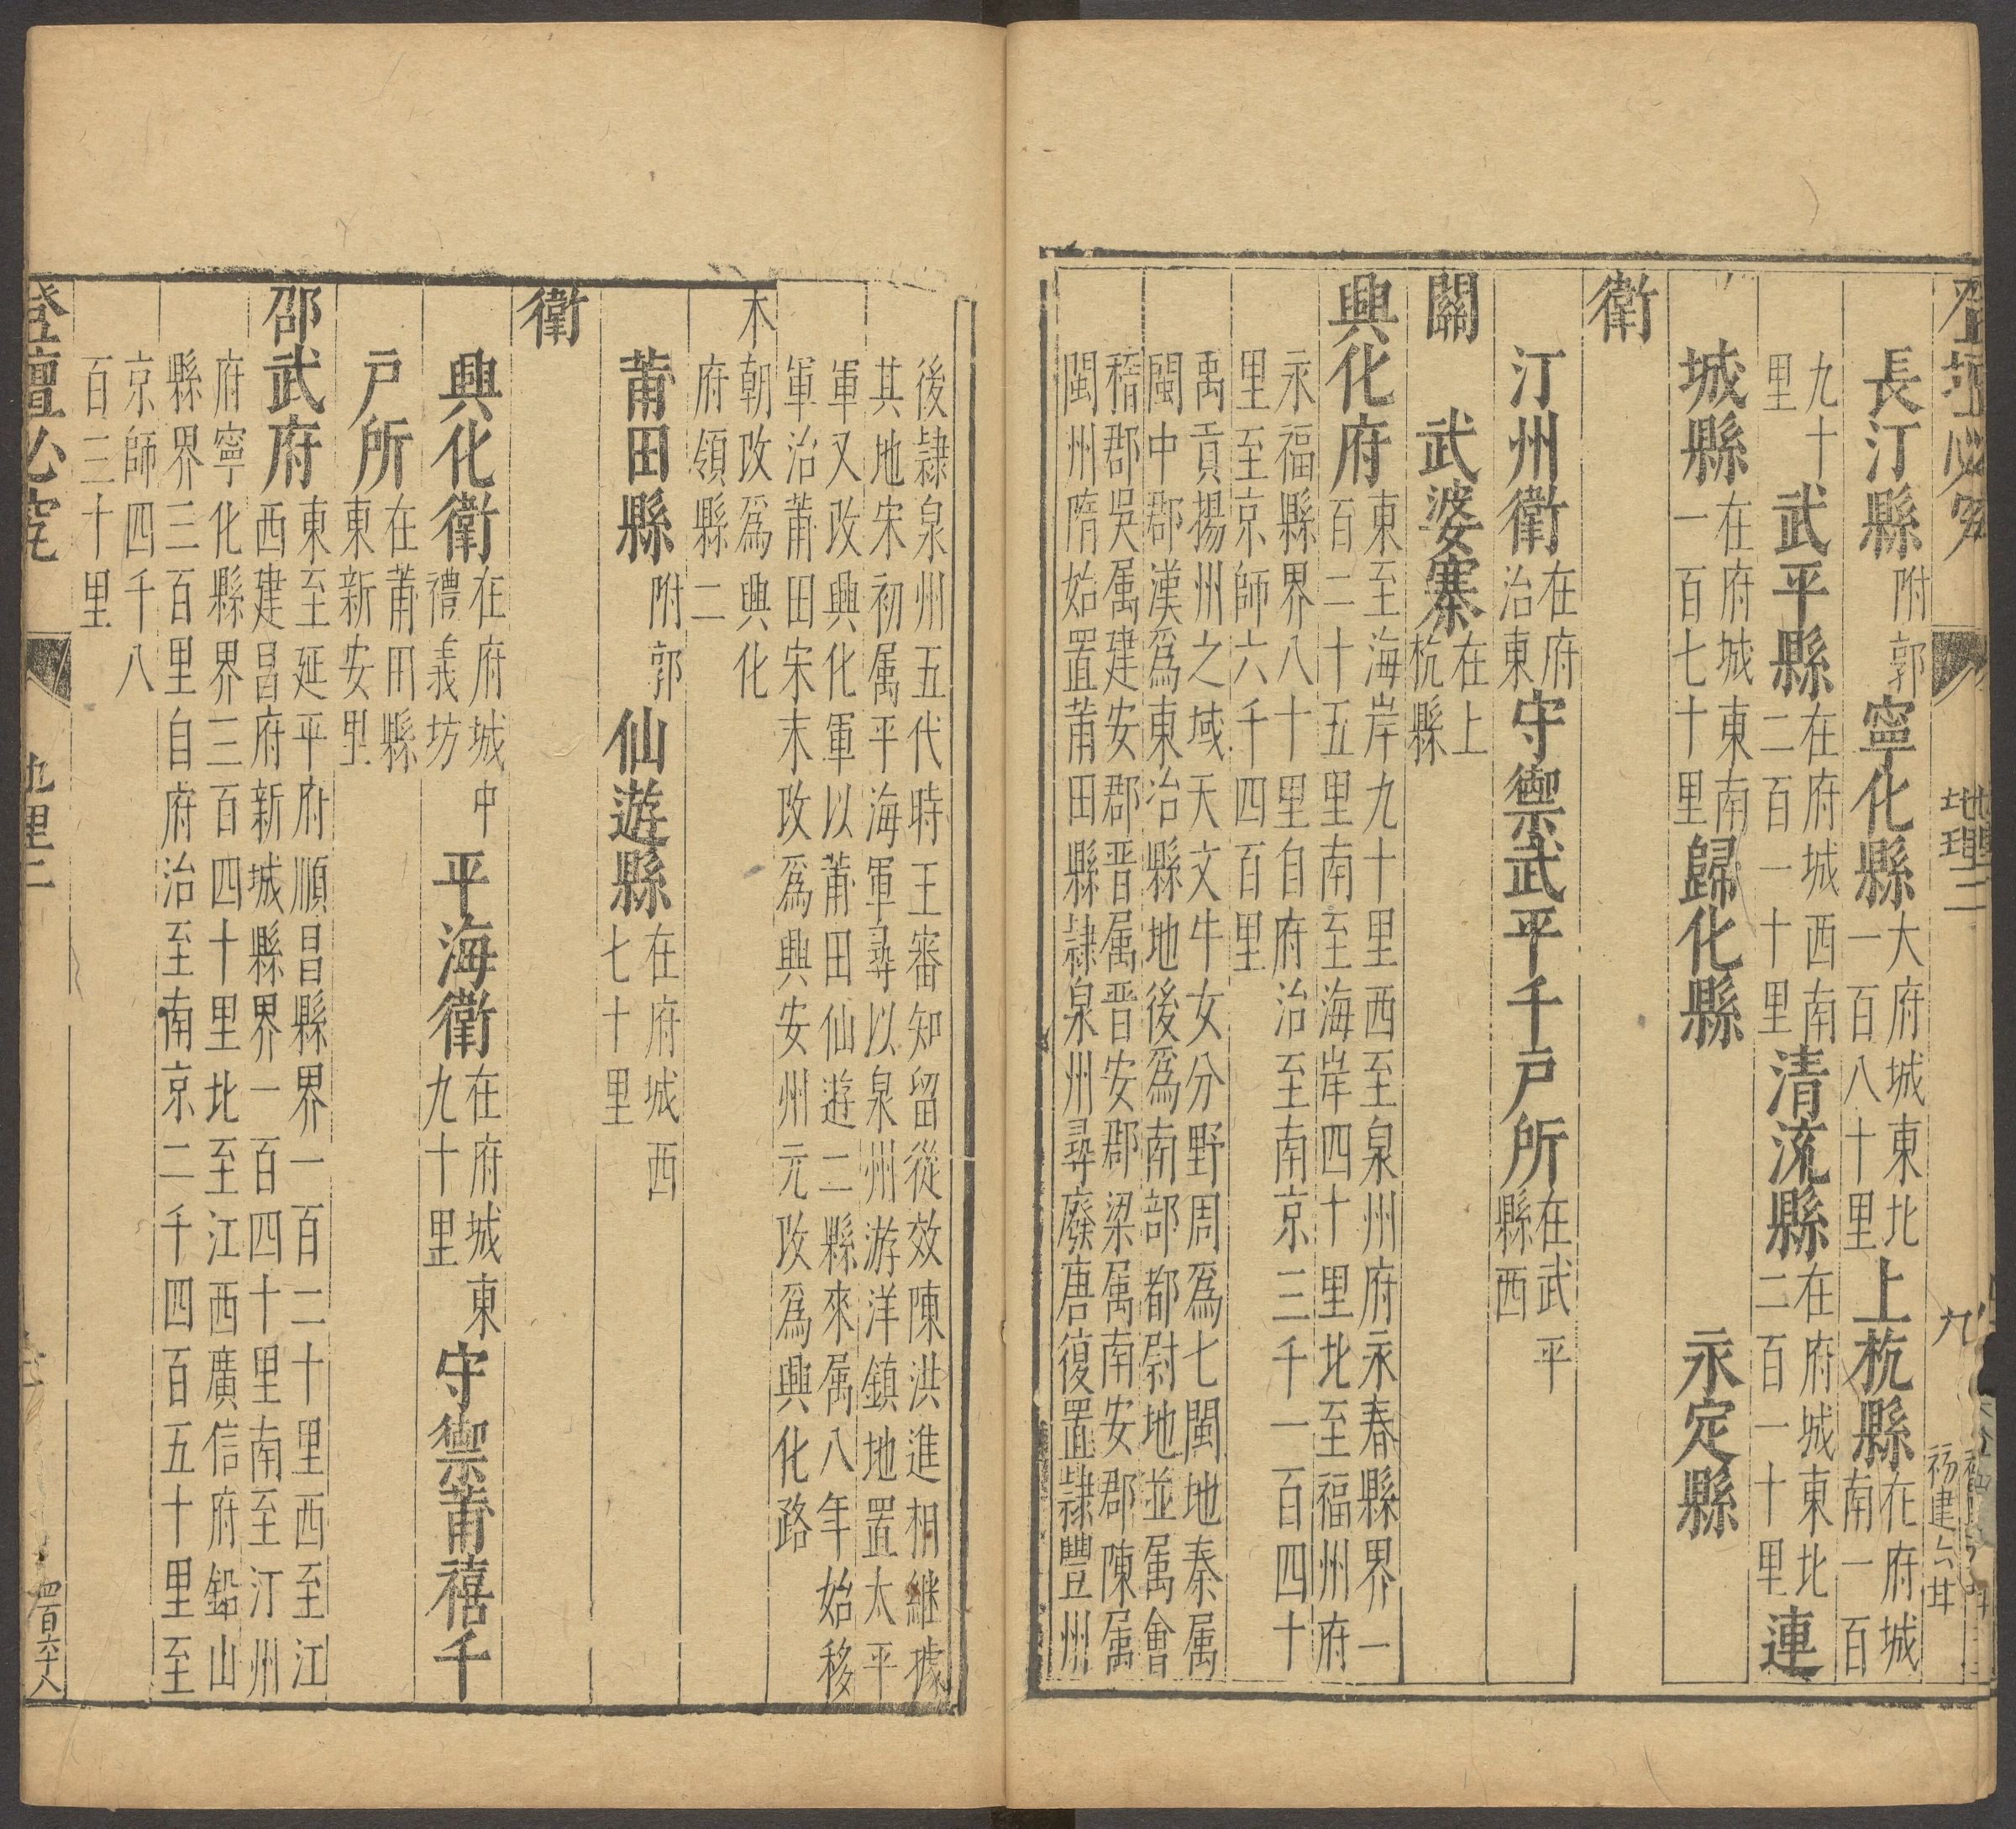 登壇必究
地理二
九
長汀縣附郭寧化縣大府城東北
一百八十里上杭縣在府城
南一百
九十
里武平縣在府城西南
二百一十里清流縣在府城東北
二百一十里連
城縣在府城東南
一百七十里歸化縣永定縣
衛
汀州衛在府
治東守禦武平千戶所在武平
縣西
關
武婆寨在上
杭縣
興化府東至海岸九十里西至泉州府永春縣界一
百二十五里南至海岸四十里北至福州府
永福縣界八十里自府治至南京三千一百四十
里至京師六千四百里
禹貢揚州之域天文牛女分野周爲七閩地秦属
閩中郡漢爲東冶縣地後爲南部都尉地並属會
稽郡吳属建安郡晋属晋安郡梁属南安郡陳属
閩州隋始置莆田縣隷泉州尋廢唐復置隷豐州
後隷泉州五代時王審知留從效陳洪進相継據
其地宋初属平海軍尋以泉州游洋鎮地置太平
軍又改興化軍以莆田仙遊二縣來属八年始移
軍治莆田宋末改爲興安州元改爲興化路
本朝改爲興化
府領縣二
莆田縣附郭仙遊縣在府城西
七十里
衛
興化衛在府城中
禮義坊平海衛在府城東
九十里守禦莆禧千
戶所在莆田縣
東新安里
邵武府東至延平府順昌縣界一百二十里西至江
西建昌府新城縣界一百四十里南至汀州
府寧化縣界三百四十里北至江西廣信府鉛山
縣界三百里自府治至南京二千四百五十里至
京師四千八
百三十里
登壇必究
地理二
四百六十八